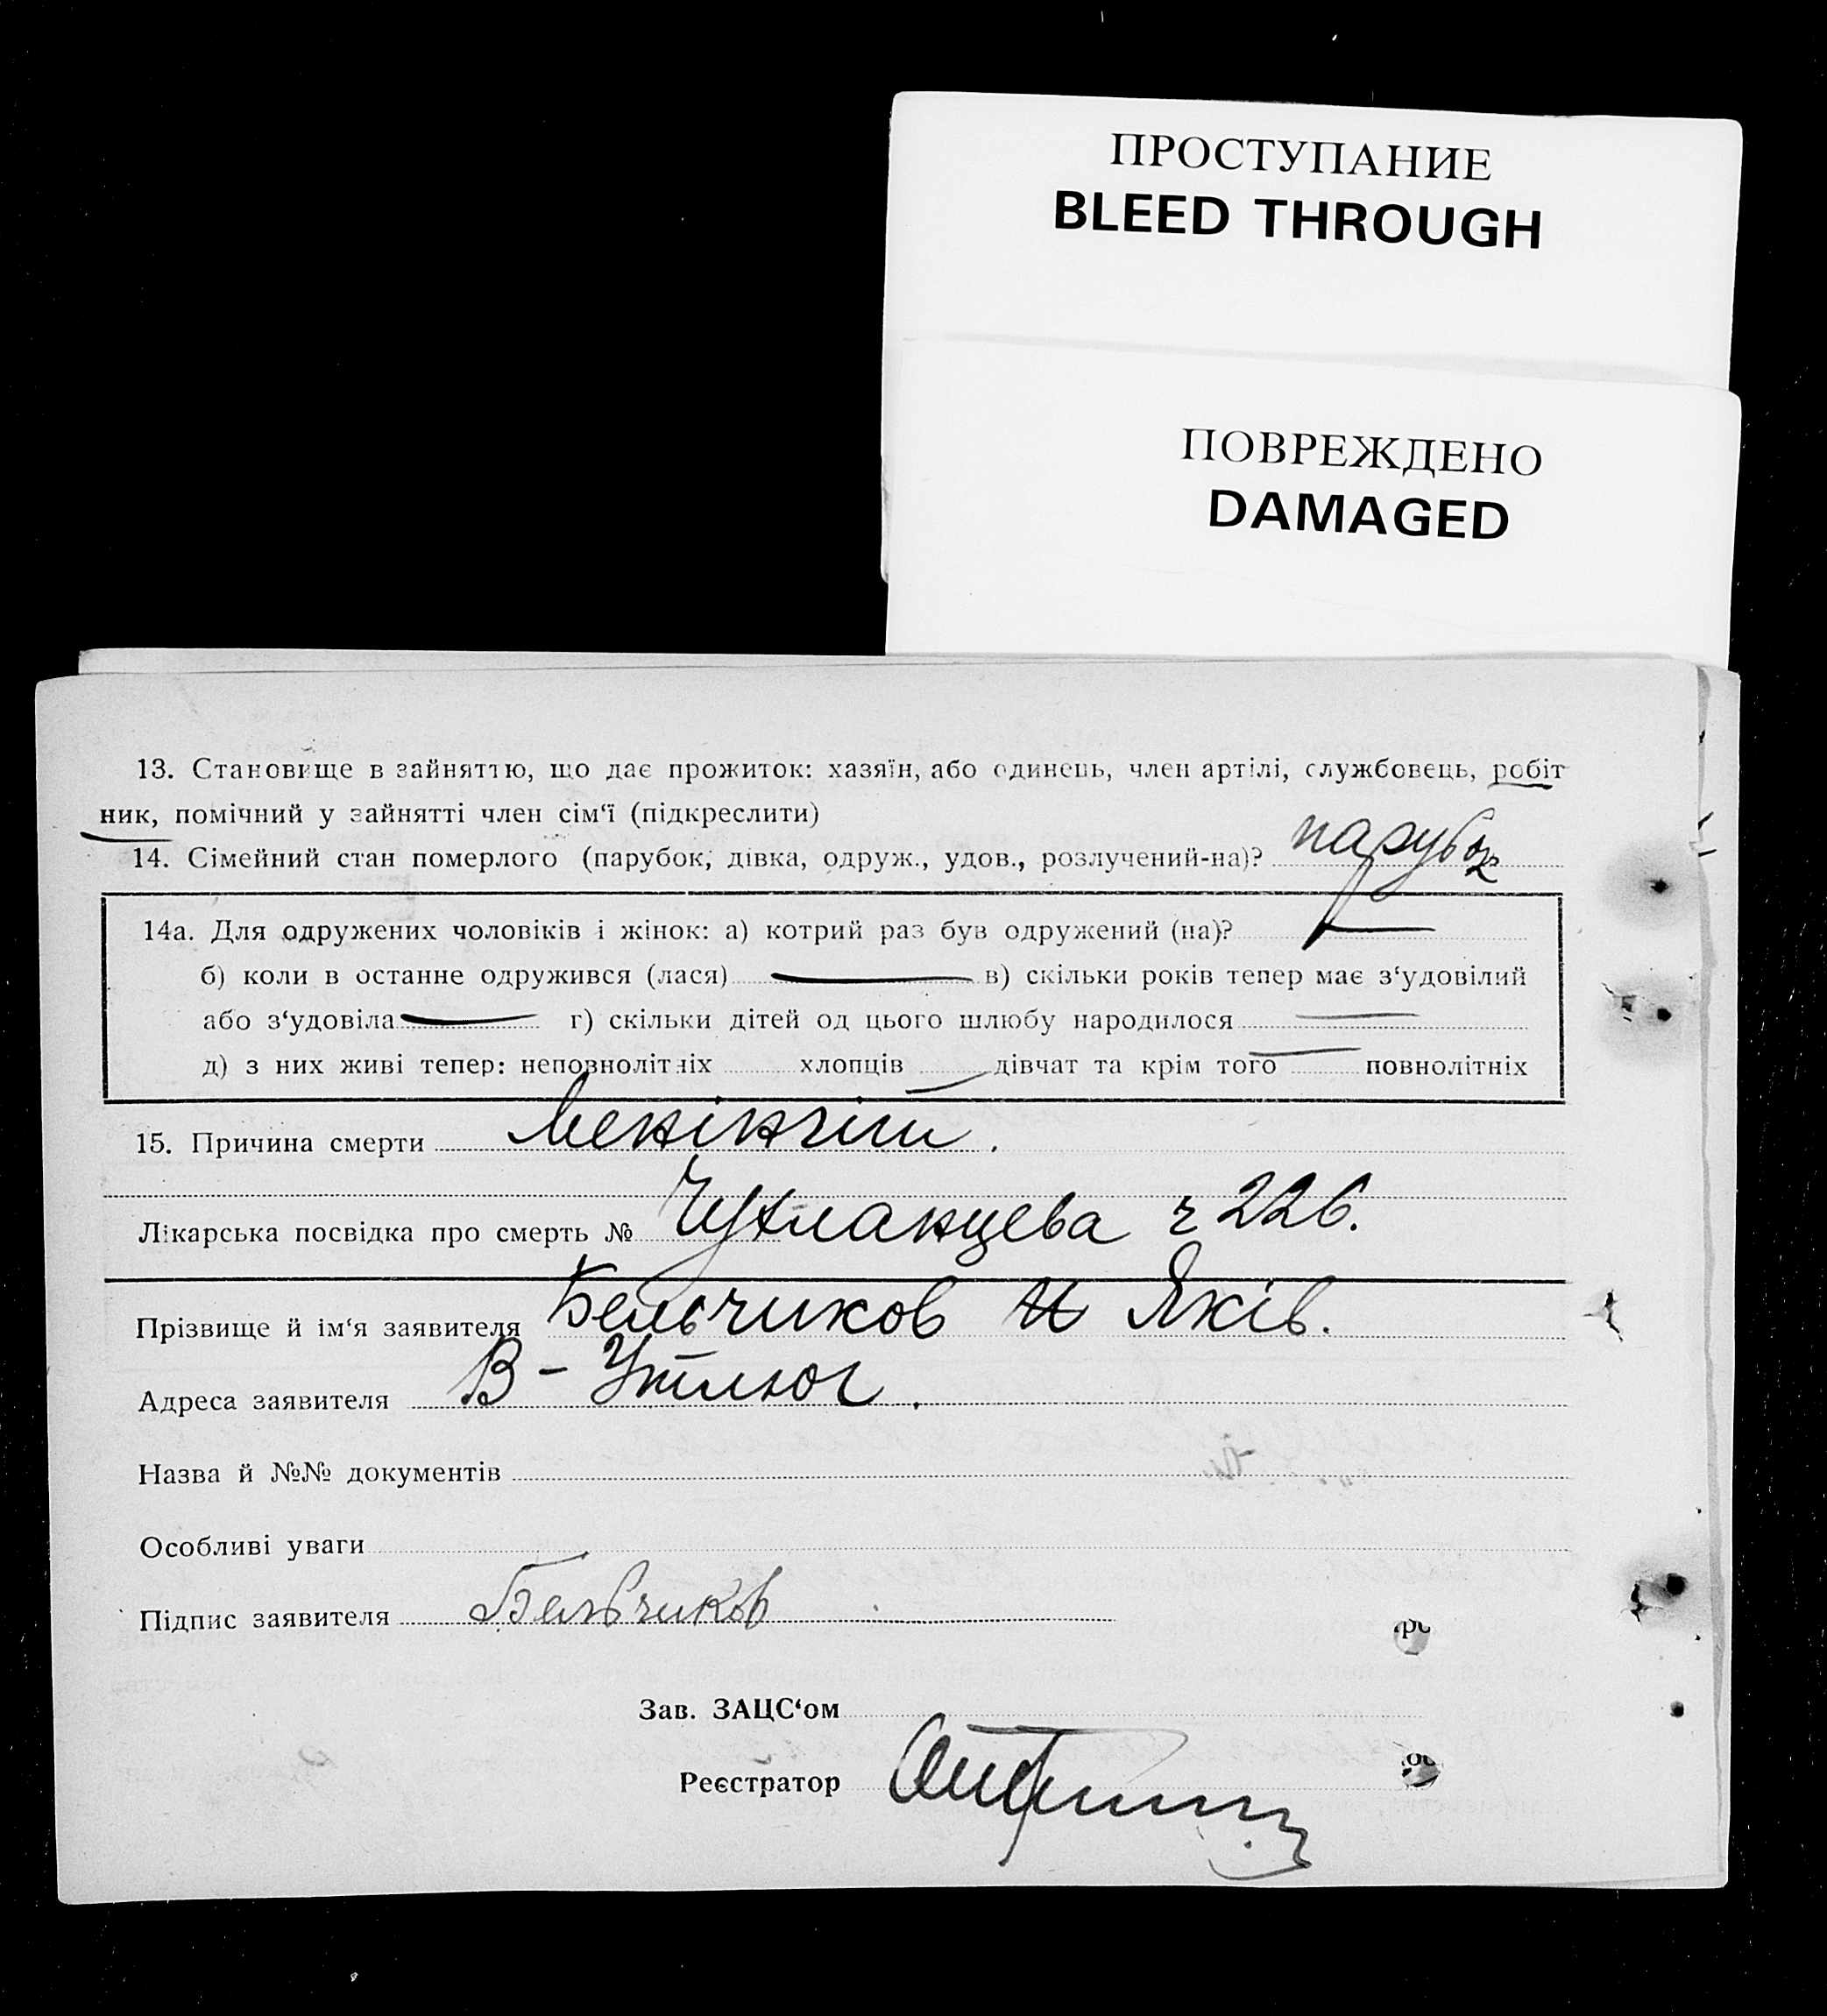 ПРОСТУПАНИЕ
BLEED THROUGH
ПОВРЕЖДЕНО
DAMAGED
13. Становище в зайняттю, що дає прожиток: хазяїн, або одинець, член артілі, службовець, робіт
ник, помічний у зайнятті член сім‘ї (підкреслити)
14. Сімейний стан померлого (парубок, дівка, одруж., удов., розлучений-на)? парубок
14а. Для одружених чоловіків і жінок: а) котрий раз був одружений (на)?
б) коли в останне одружився (лася) в) скільки років тепер має з‘удовілий
або з‘удовіла г) скільки дітей од цього шлюбу народилося
д) з них живі тепер: неповнолітніх хлопців дівчат та крім того повнолітніх
15. Причина смерти Менінгіт.
Лікарська посвідка про смерть № 226.
Прізвище й ім‘я заявителя Бельчиков Яків.
Адреса заявителя В-
Назва й №№ документів
Особливі уваги
Підпис заявителя Бельчиков
Зав. ЗАЦС‘ом
Реєстратор